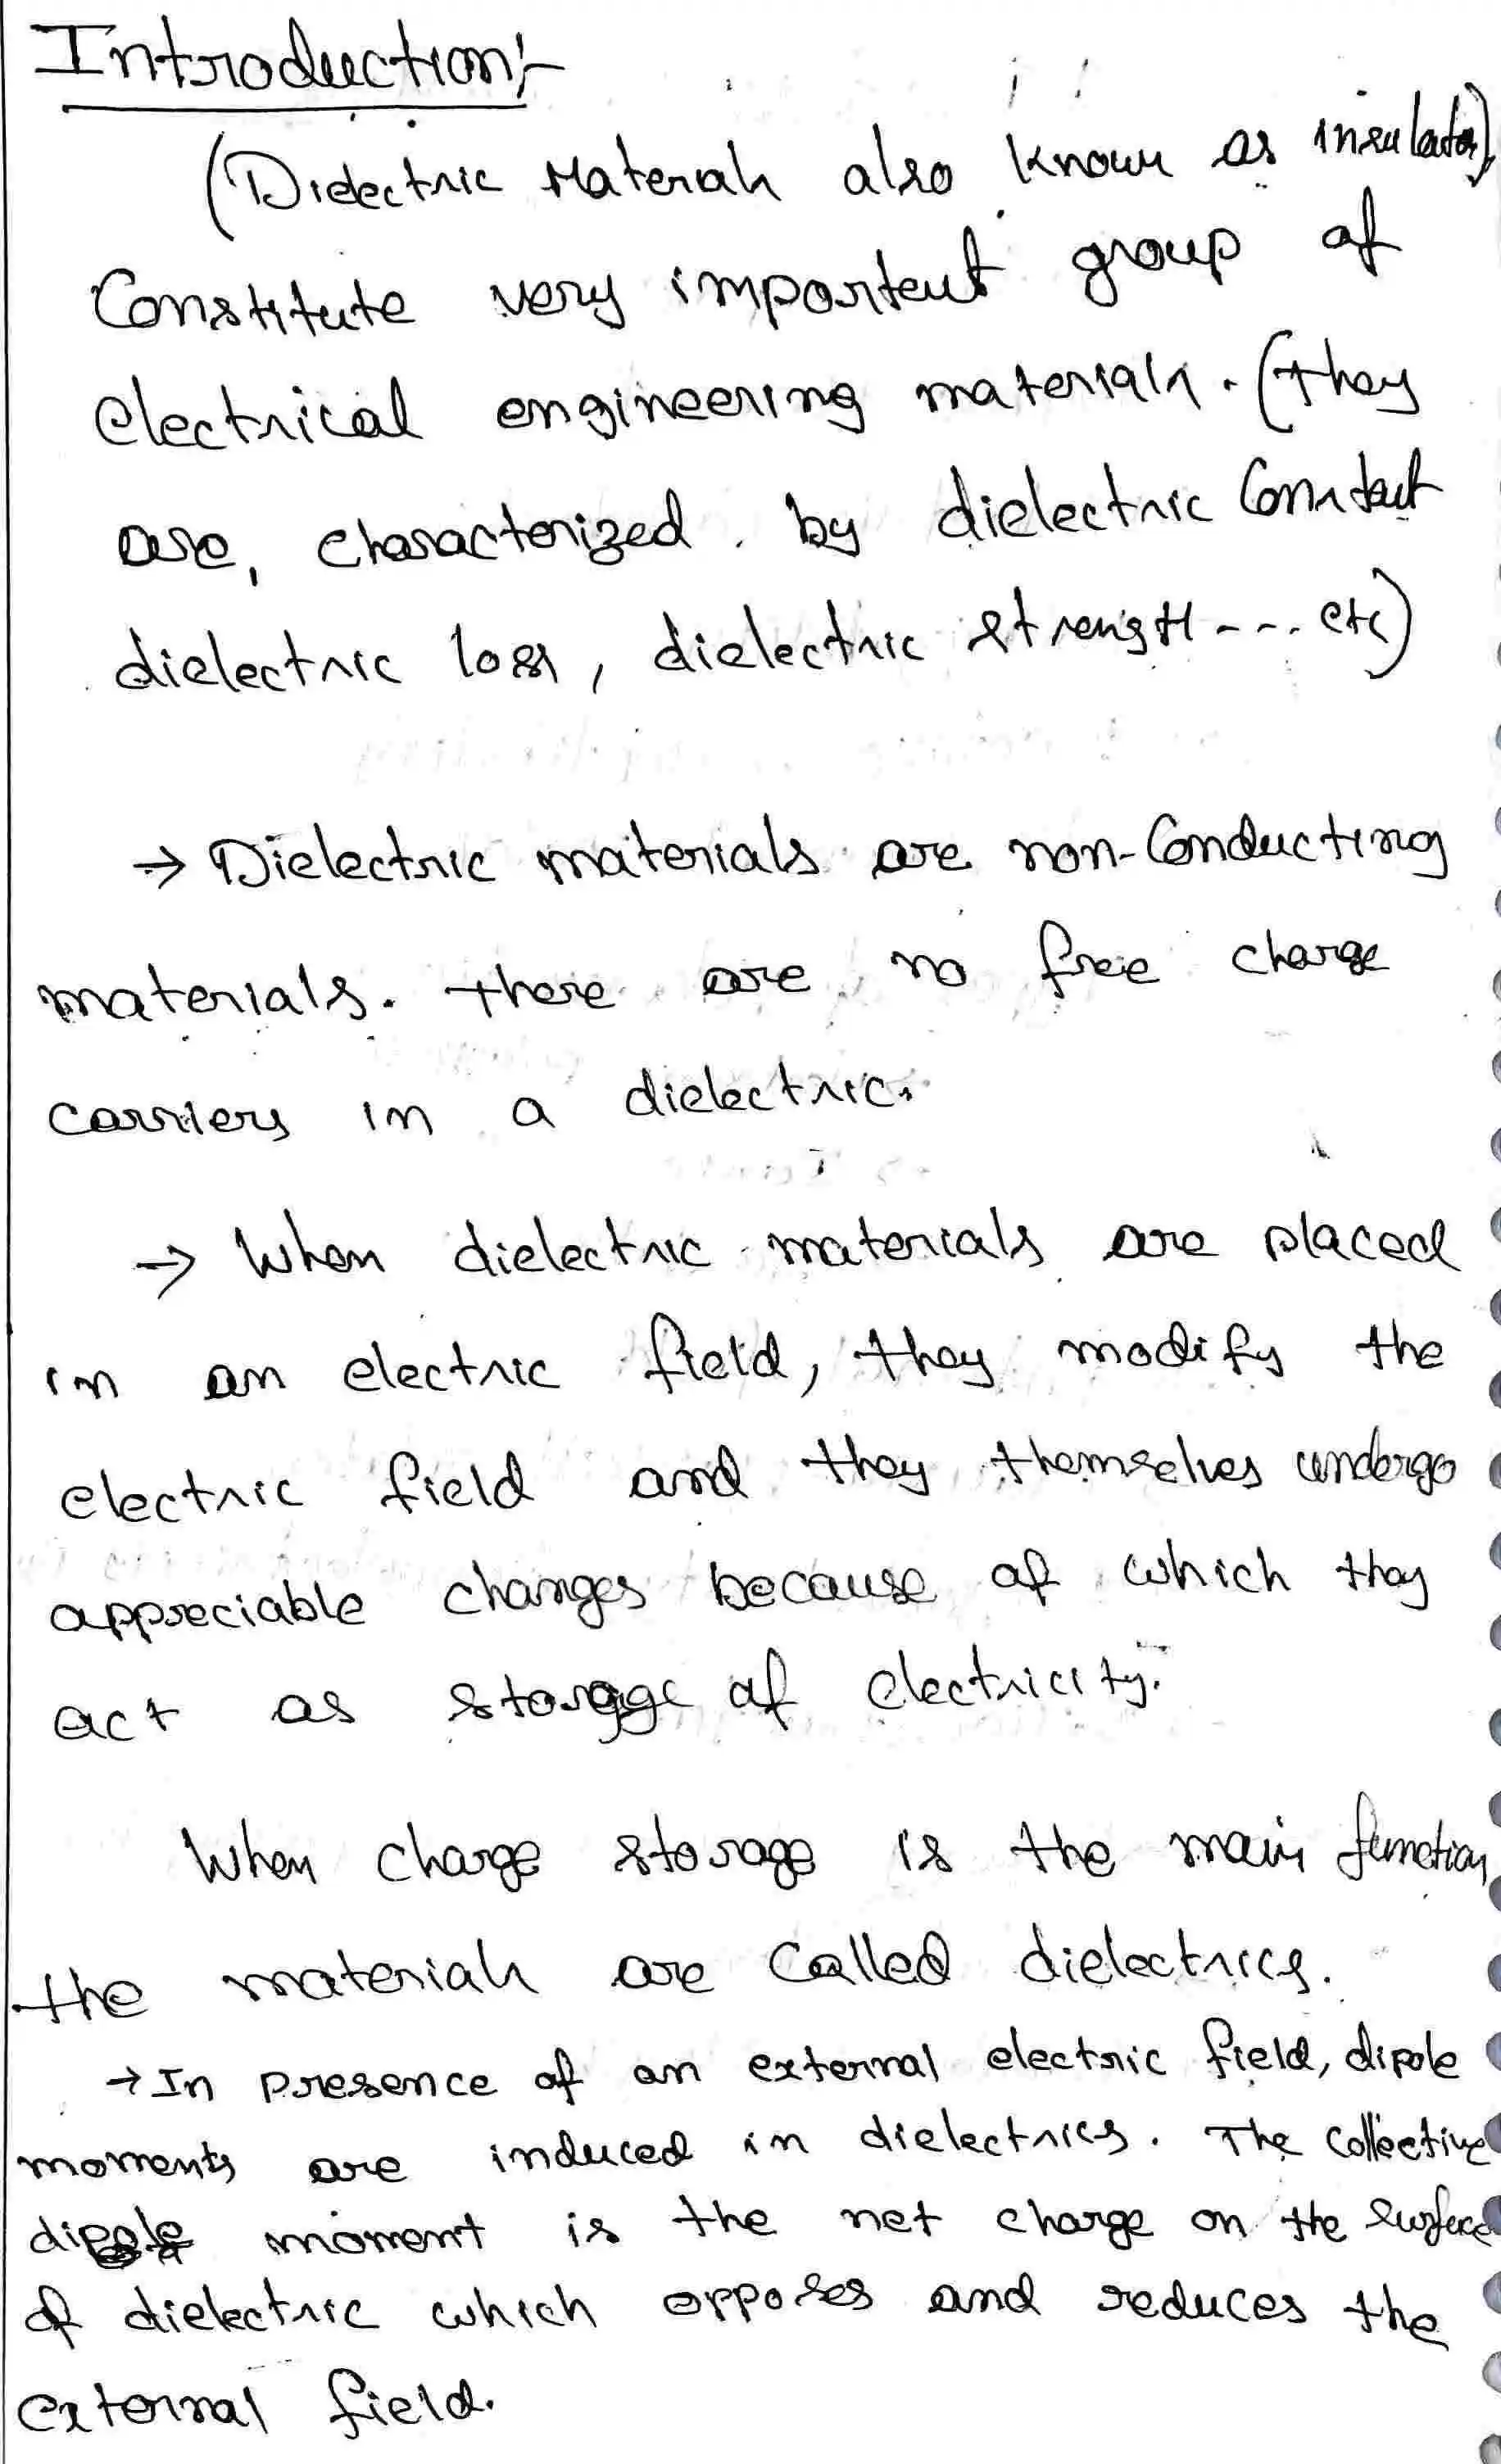 Introduction:-
(Dielectric Materials also known as insulators),
Constitute very important group of
electrical engineering materials. (they
are, characterized by dielectric Constant
dielectric loss, dielectric strength --- etc)
→ Dielectric materials are non-Conducting
materials. there are no free charge
carriers in a dielectric.
→ When dielectric materials are placed
in an electric field, they modify the
electric field and they themselves undergo
appreciable changes because of which they
act as storage of electricity.
When charge storage is the main function,
the materials are Called dielectrics.
→ In presence of an external electric field, dipole
moments are induced in dielectrics. The Collective
dipole moment is the net charge on the surface
of dielectric which opposes and reduces the
external field.